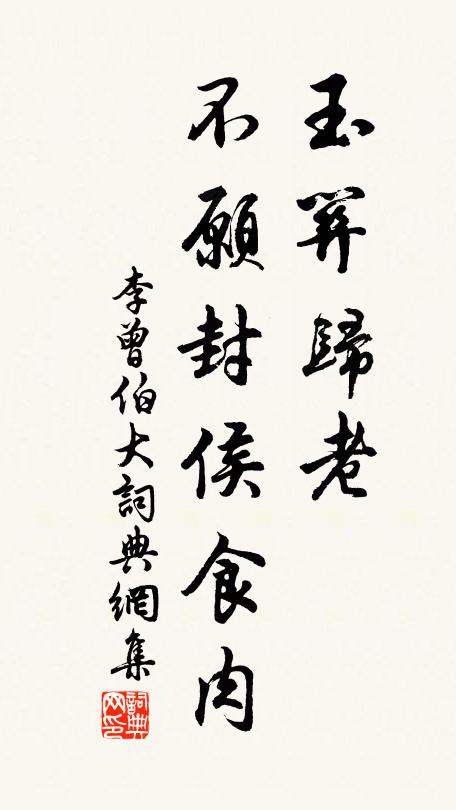 玉關歸老
不願封侯食肉
李曾伯大詞典網集
詞典网印